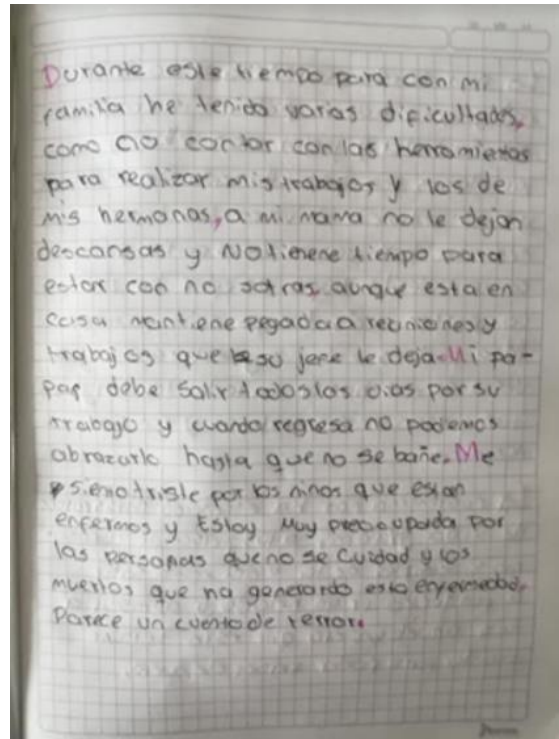 Durante este tiempo para con mi
familia he tenido varias dificultades,
como no contar con las herramietas
para realizar mis trabajos y los de
mis hermanas, a mi mama no le dejan
descansas y No tienene tiempo para
estar con no sotras, aunque esta en
casa mantiene pegada a reuniones y
trabajos que su jefe le deja. Mi pa-
pap debe salir todos los dias por su
trabajo y cuando regresa no podemos
abrazarlo hasta que no se bañe. Me
siento triste por los niños que estan
enfermos y Estoy Muy preocupada por
las personas que no se cuidad y los
muertos que ha generardo esta enfermedad.
Parece un cuento de terror.